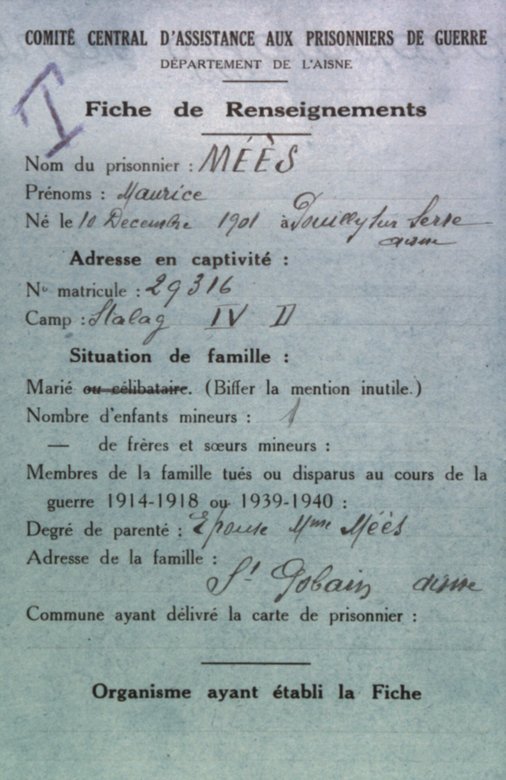 COMITÉ CENTRAL D'ASSISTANCE AUX PRISONNIERS DE GUERRE
DÉPARTEMENT DE L'AISNE
I
Fiche de Renseignements
Nom du prisonnier : MÉÈS
Prénoms : Maurice
Né le 10 Decembre 1901 à Pouilly sur Serre
aisne
Adresse en captivité :
No matricule : 29316
Camp : Stalag IV D
Situation de famille :
Marié ou célibataire. (Biffer la mention inutile.)
Nombre d'enfants mineurs : 1
— de frères et sœurs mineurs :
Membres de la famille tués ou disparus au cours de la
guerre 1914-1918 ou 1939-1940 :
Degré de parenté : Epouse Mme Méès
Adresse de la famille :
St Gobain aisne
Commune ayant délivré la carte de prisonnier :
Organisme ayant établi la Fiche